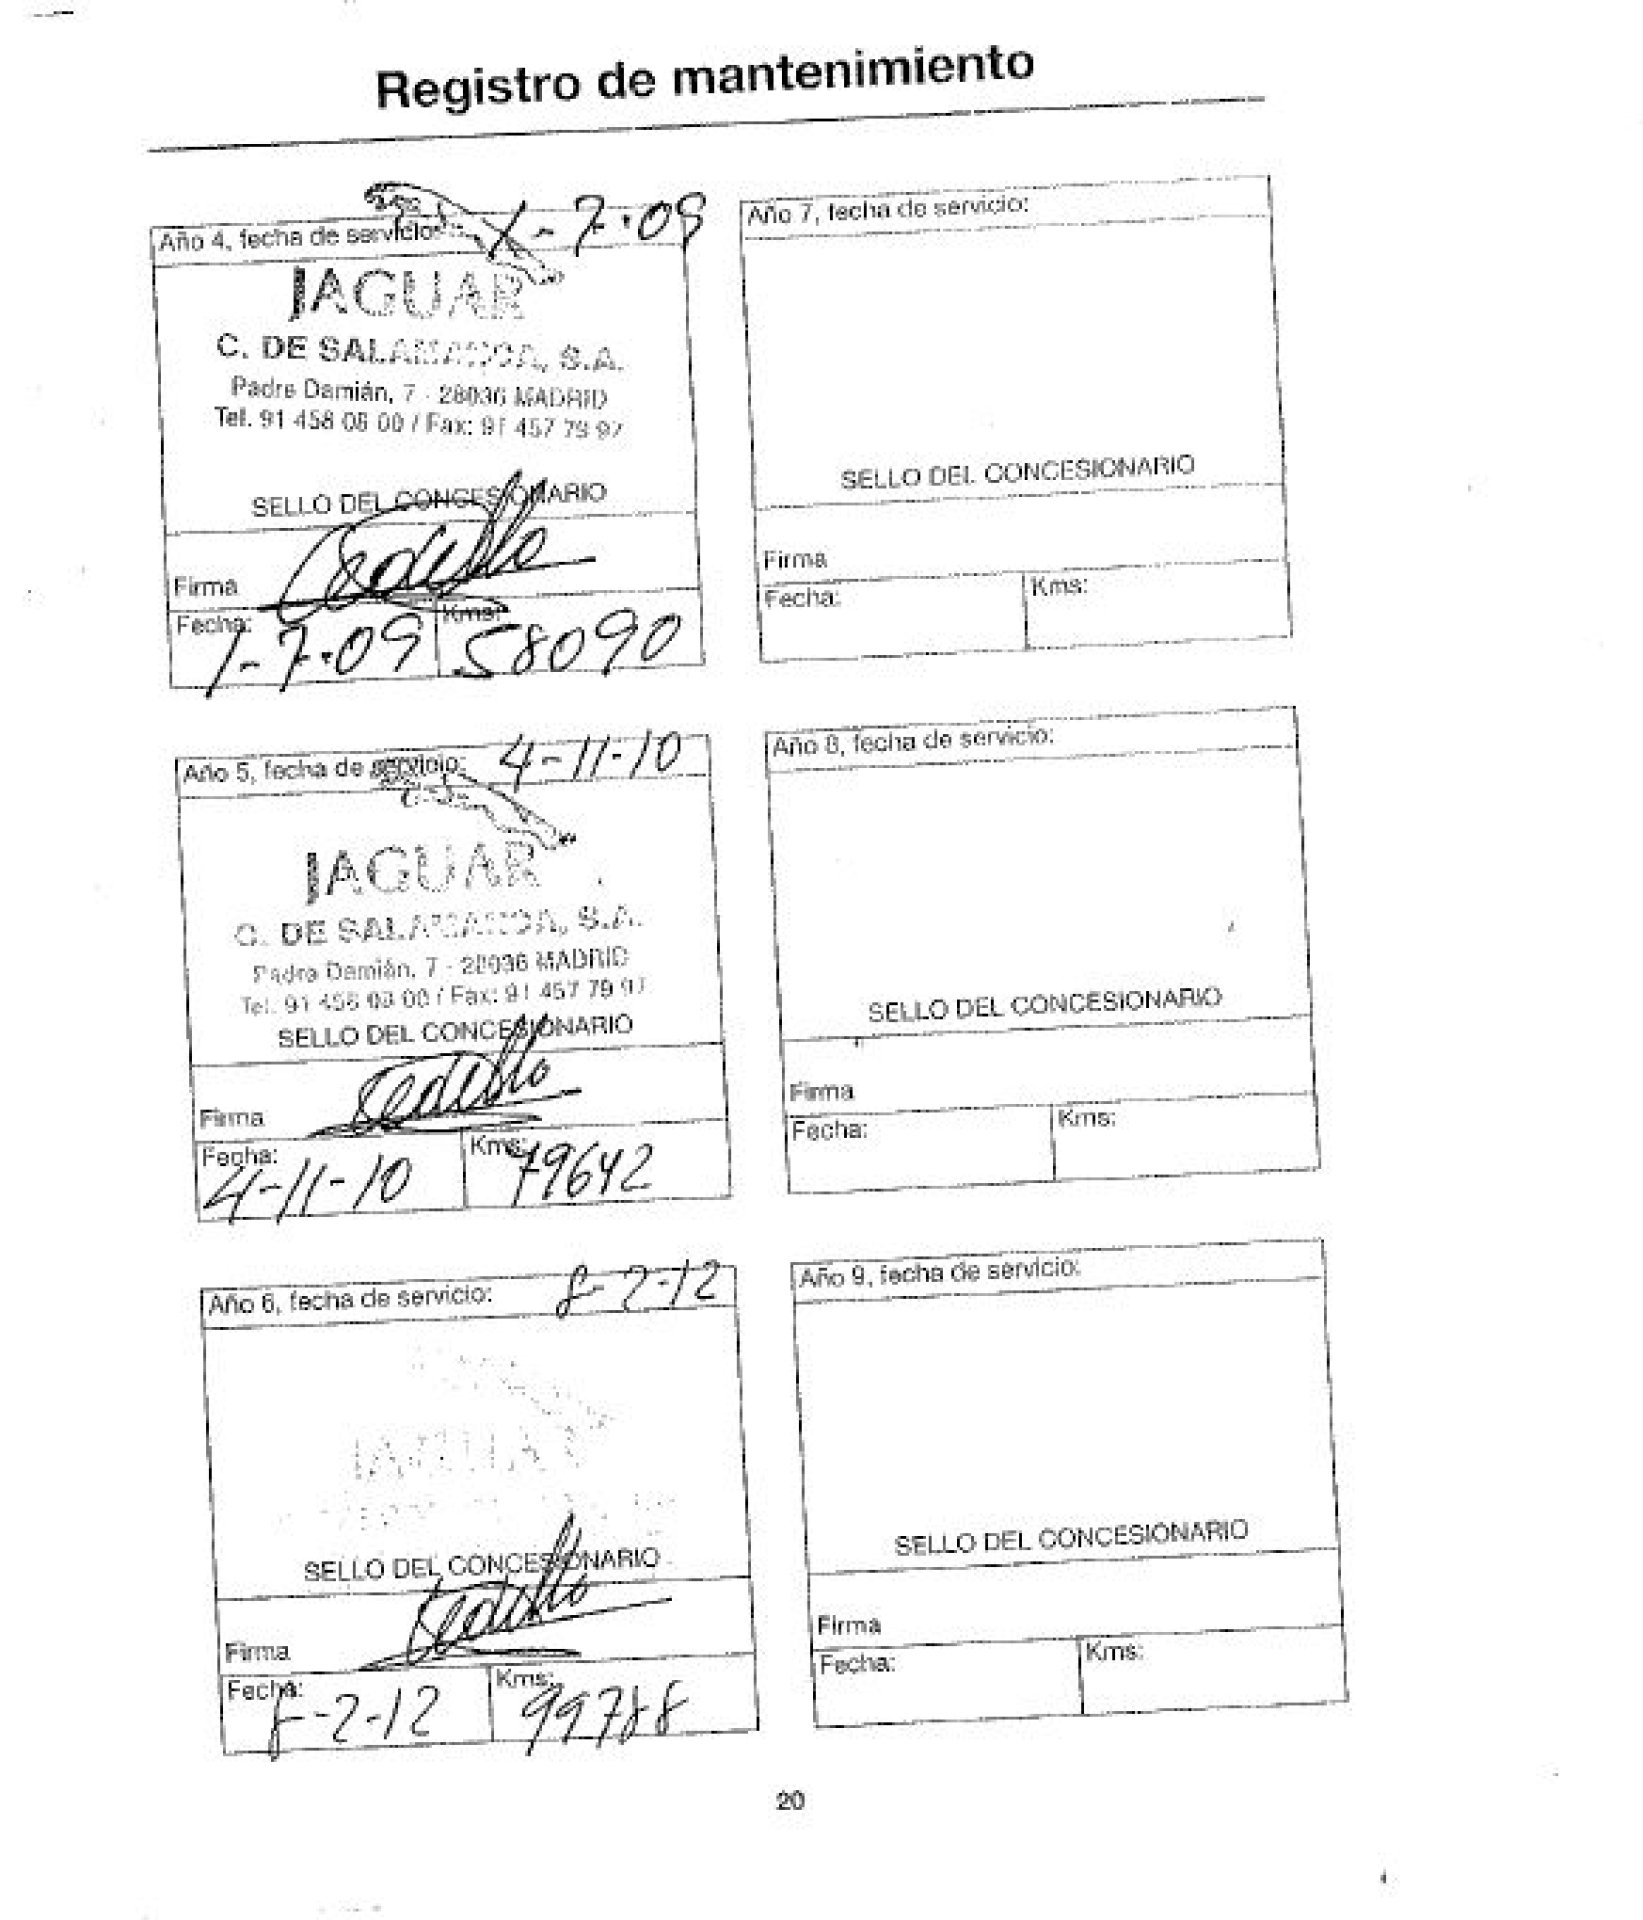 Registro de mantenimiento
Año 4, fecha de servicio: 1-7-09
JAGUAR
C. DE SALAMANCA, S.A.
Padre Damián, 7 - 28036 MADRID
Tel. 91 458 08 00 / Fax: 91 457 79 97
SELLO DEL CONCESIONARIO
Firma
Fecha: 1-7-09 Kms: 58090
Año 5, fecha de servicio: 4-11-10
JAGUAR
C. DE SALAMANCA, S.A.
Padre Damián, 7 - 28036 MADRID
Tel. 91 458 08 00 / Fax: 91 457 79 97
SELLO DEL CONCESIONARIO
Firma
Fecha: 4-11-10 Kms: 79642
Año 6, fecha de servicio: 8-2-12
JAGUAR
SELLO DEL CONCESIONARIO
Firma
Fecha: 8-2-12 Kms: 99788
Año 7, fecha de servicio:
SELLO DEL CONCESIONARIO
Firma
Fecha: Kms:
Año 8, fecha de servicio:
SELLO DEL CONCESIONARIO
Firma
Fecha: Kms:
Año 9, fecha de servicio:
SELLO DEL CONCESIONARIO
Firma
Fecha: Kms:
20